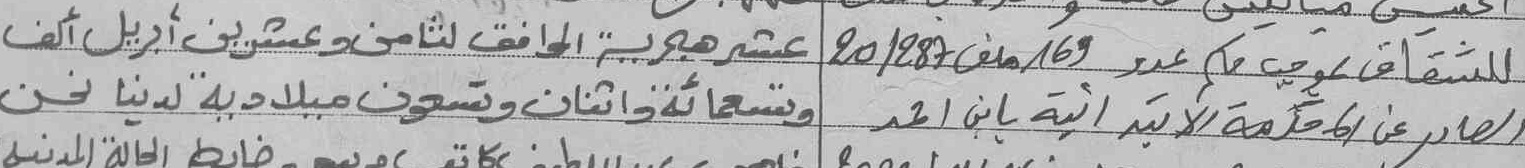 للشقاق بموجب حكم عدد 169 ملف 20/287
الصادر عن المحكمة الابتدائية بابن احمد
عشر هجرية الموافق لثامن وعشرين أبريل ألف
وتسعمائة واثنان وتسعون ميلادية لدينا نحن
ضابط الحالة المدنية